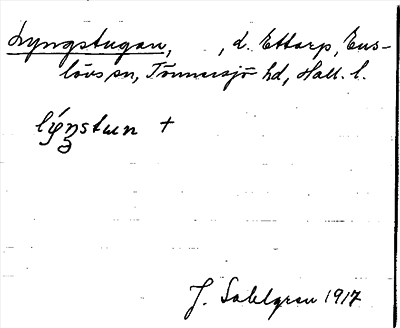 Lyngstugan, , d. Ettarp, Ens-
lövs sn, Tönnersjö hd, Hall. l.
lýŋstuun +
J. Sahlgren 1917